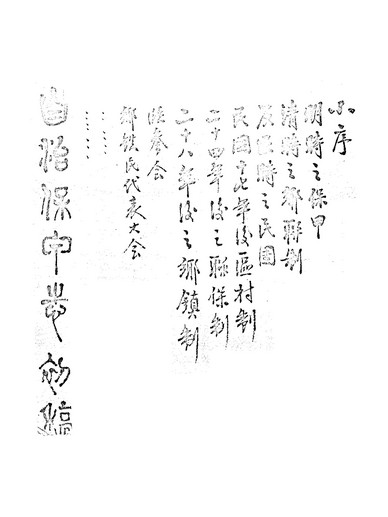 小序
明時之保甲
清時之鄉聯制
民國時之民團
民國十七年後區村制
二十四年後之聯保制
二十八年後之鄉鎮制
臨參會
鄉鎮民代表大会
自治保甲志初稿